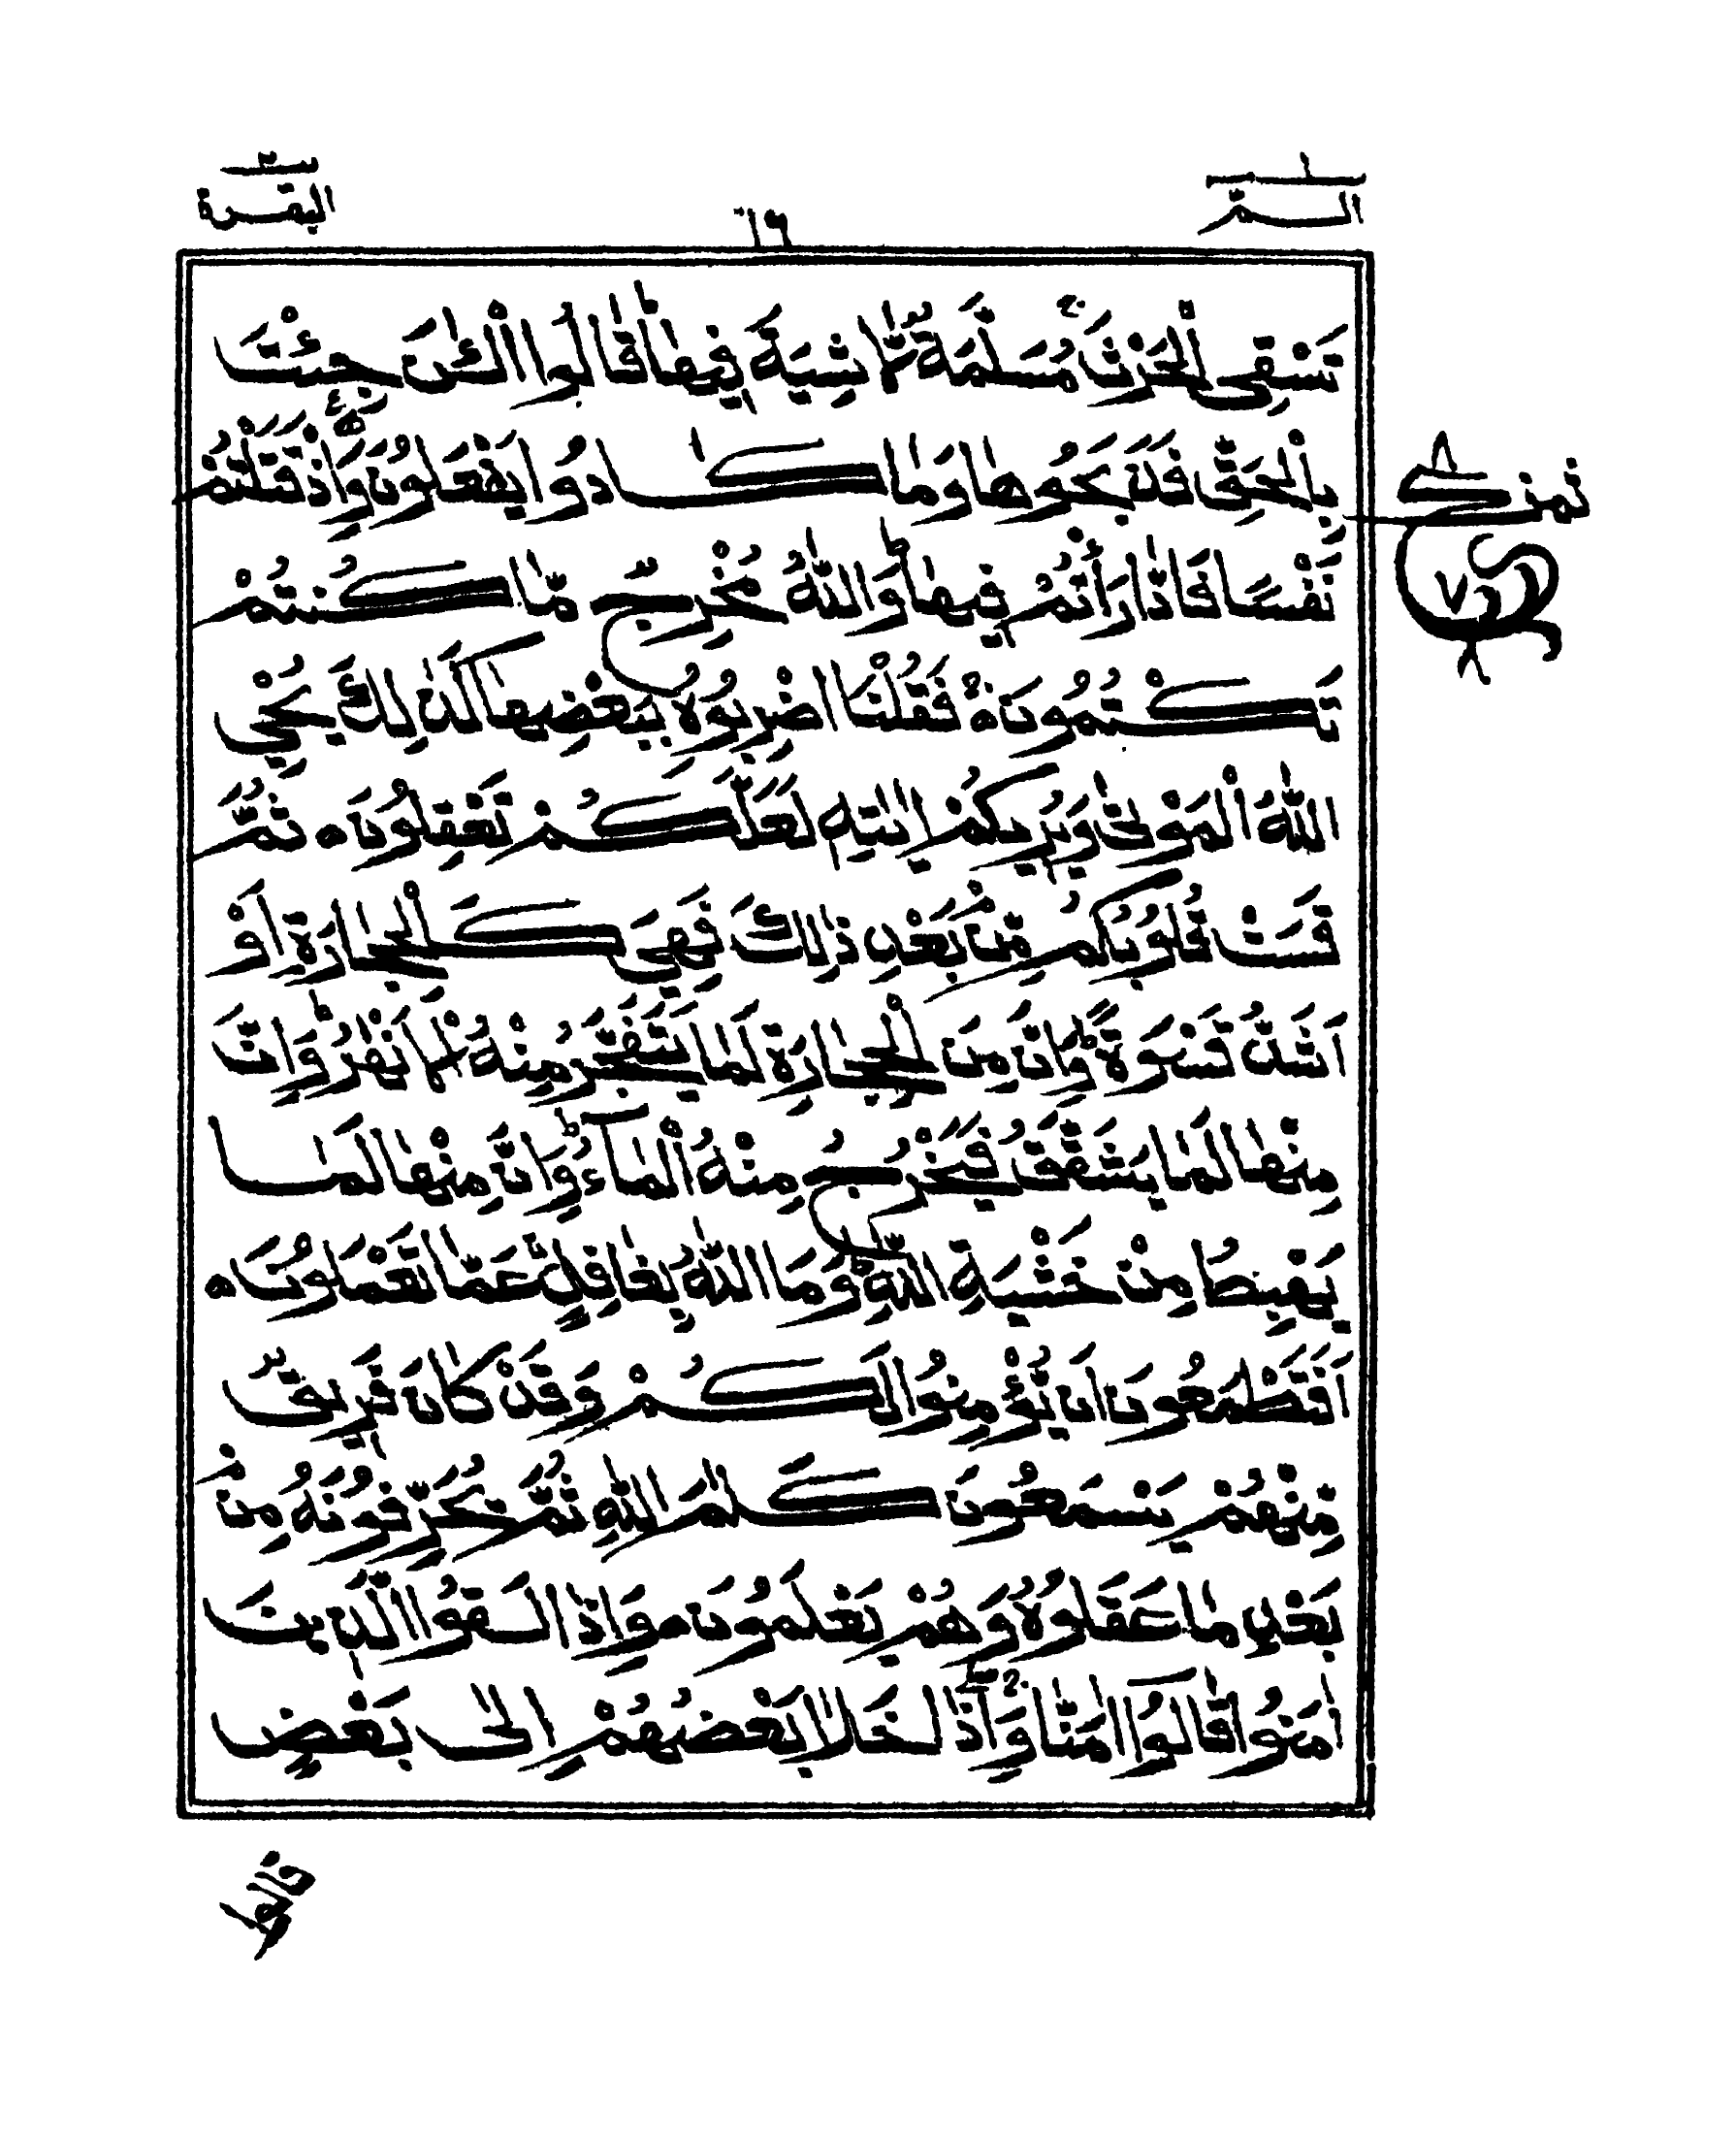 الم ١
١٦
البقرة
تَسْقِى الْحَرْثَ مُسَلَّمَةٌ لَّا شِيَةَ فِيهَا قَالُوا الْـٰٔنَ جِئْتَ
بِالْحَقِّ فَذَبَحُوهَا وَمَا كَادُوا يَفْعَلُونَ وَاِذْ قَتَلْتُمْ
نَفْسًا فَادّٰرَأْتُمْ فِيهَا وَاللّٰهُ مُخْرِجٌ مَّا كُنتُمْ
تَكْتُمُونَ ۝ فَقُلْنَا اضْرِبُوهُ بِبَعْضِهَا كَذٰلِكَ يُحْيِ
اللّٰهُ الْمَوْتٰى وَيُرِيكُمْ اٰيٰتِهٖ لَعَلَّكُمْ تَعْقِلُونَ ۝ ثُمَّ
قَسَتْ قُلُوبُكُمْ مِّنْ بَعْدِ ذٰلِكَ فَهِيَ كَالْحِجَارَةِ اَوْ
اَشَدُّ قَسْوَةً وَاِنَّ مِنَ الْحِجَارَةِ لَمَا يَتَفَجَّرُ مِنْهُ الْاَنْهٰرُ وَاِنَّ
مِنْهَا لَمَا يَشَّقَّقُ فَيَخْرُجُ مِنْهُ الْمَآءُ وَاِنَّ مِنْهَا لَمَا
يَهْبِطُ مِنْ خَشْيَةِ اللّٰهِ وَمَا اللّٰهُ بِغَافِلٍ عَمَّا تَعْمَلُونَ ۝
اَفَتَطْمَعُونَ اَن يُّؤْمِنُوا لَكُمْ وَقَدْ كَانَ فَرِيقٌ
مِّنْهُمْ يَسْمَعُونَ كَلٰمَ اللّٰهِ ثُمَّ يُحَرِّفُونَهُ مِنْ
بَعْدِ مَا عَقَلُوهُ وَهُمْ يَعْلَمُونَ ۝ وَاِذَا لَقُوا الَّذِينَ
اٰمَنُوا قَالُوٓا اٰمَنَّا وَاِذَا خَلَا بَعْضُهُمْ اِلٰى بَعْضٍ
قالوا